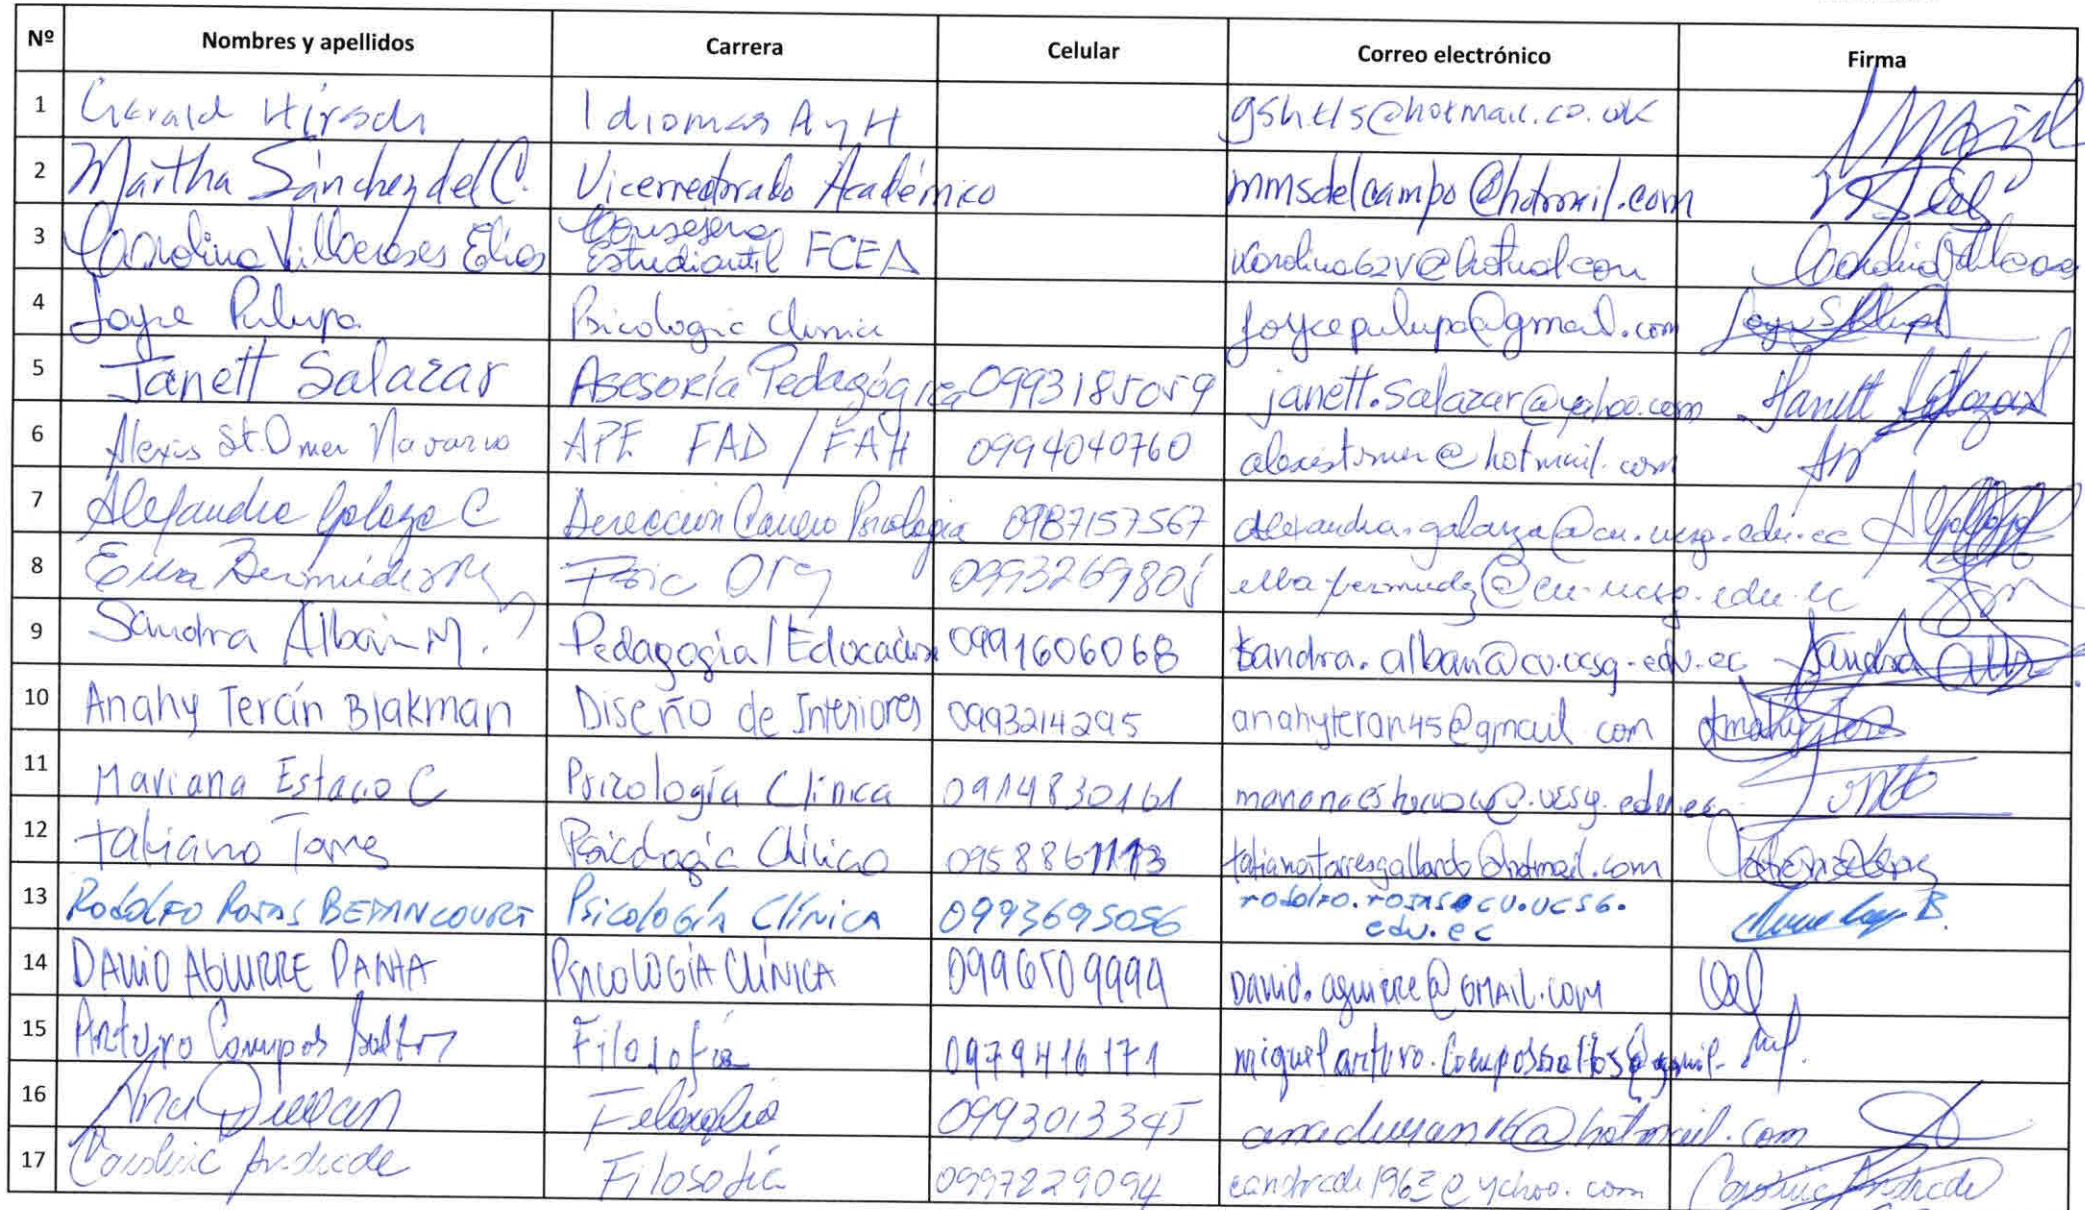 Nº Nombres y apellidos Carrera Celular Correo electrónico Firma
1 Gerald Hirsch Idiomas A y H gshtls@hotmail.co.uk
2 Martha Sánchez del C. Vicerrectorado Académico mmsdelcampo@hotmail.com
3 Carolina Villacreses Elías Consejera
Estudiantil FCEA
4 Joyce Pulupa Psicologia Clinica joycepulupa@gmail.com
5 Janett Salazar Asesoría Pedagógica 0993185059 janett.salazar@yahoo.com Janett Salazar
6 Alexis St. Omer Navarro APE FAD / FAH 0994040760 alexistomer@hotmail.com
7 Alejandra Galarza C Dirección Carrera Psicologia 0987157567
8 Psic Org
9 Sandra Albán M. Pedagogía / Educación 0991606068 sandra.alban@cu.ucsg.edu.ec Sandra Albán
10 Anahy Terán Blakman Diseño de Interiores 0993214295 anahyteran45@gmail.com
11 Mariana Estacio C Psicología Clínica 0914830161
12 Tatiana Torres Psicología Clínica 0958861113 tatianatorresgallardo@hotmail.com
13 RODOLFO ROJAS BETANCOURT Psicología Clínica 0993695056 rodolfo.rojas@cu.ucsg.
edu.ec
14 DAVID AGUIRRE PANTA PSICOLOGÍA CLÍNICA 0996509999 DAVID.aguirre@GMAIL.COM
15 Arturo Campos Filosofía 0979416171
16 Ana Filosofía 0993013345
17 Carolina Andrade Filosofía 0997229094 candrade1963@yahoo.com Carolina Andrade